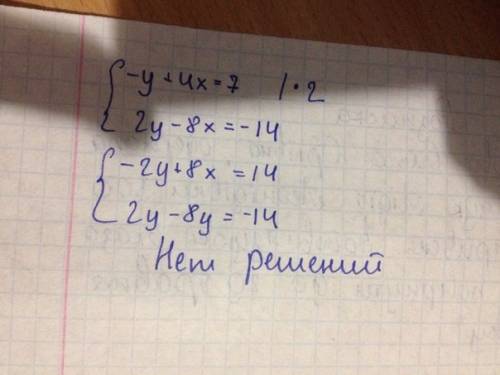 { -y + 4x = 7 | • 2
2y - 8x = -14
{ -2y + 8x = 14
2y - 8y = -14
Нет решений